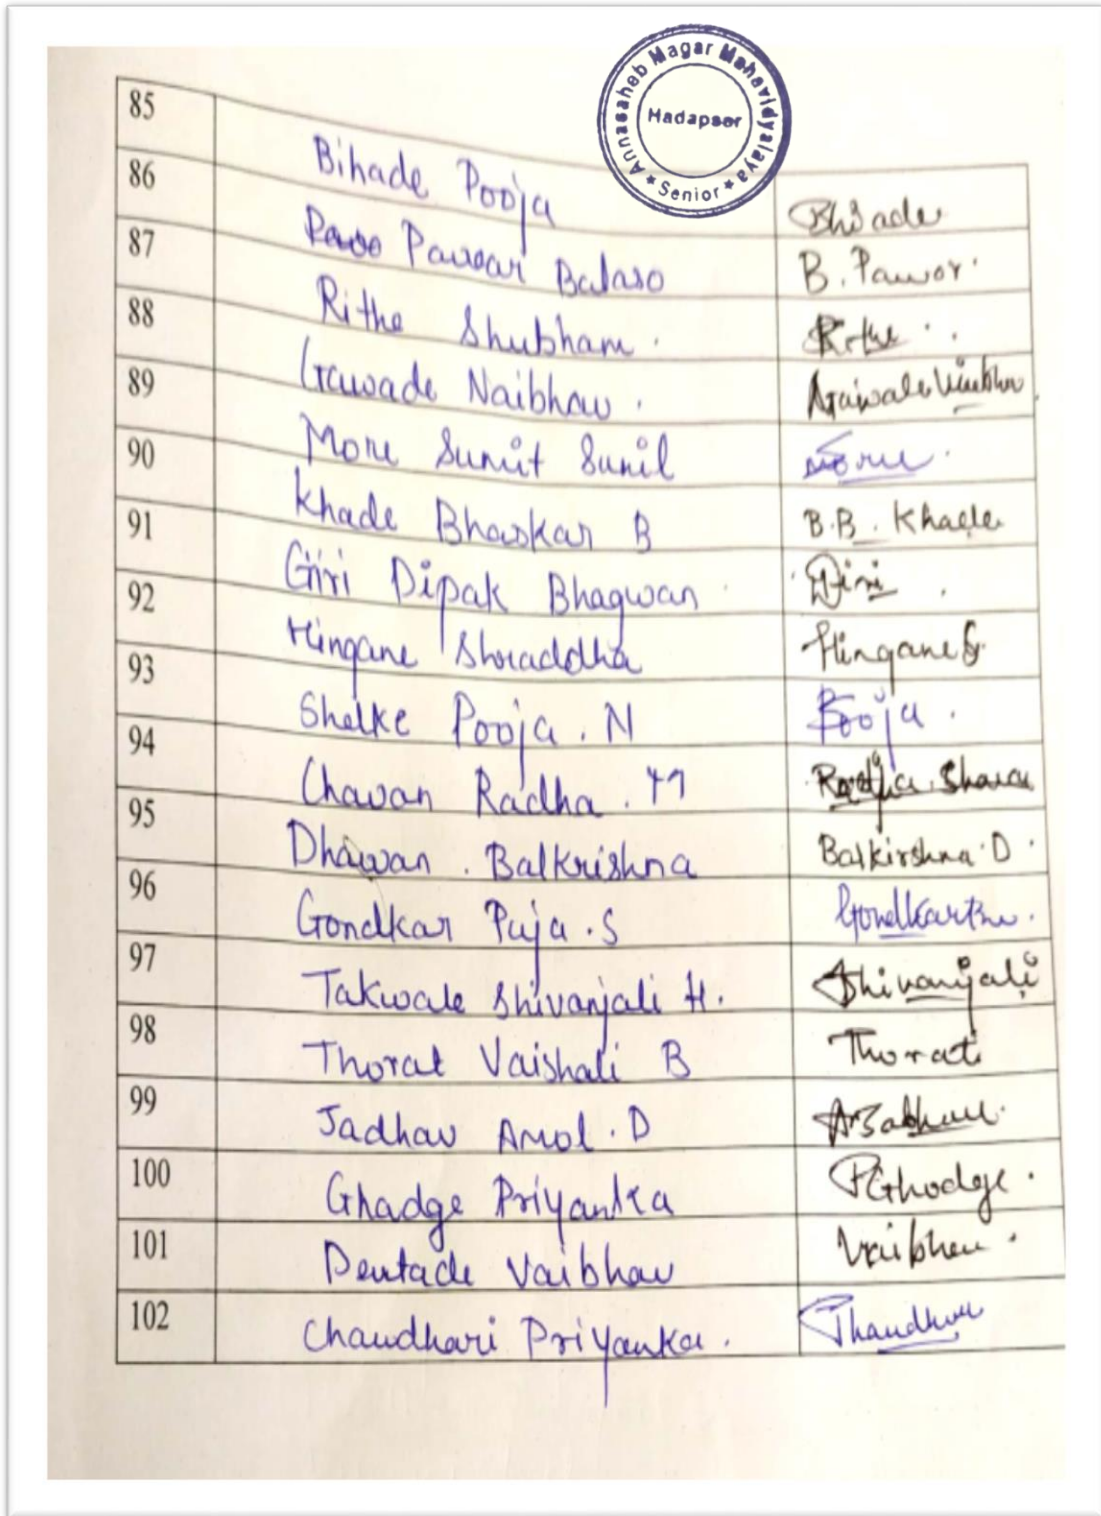 Annasaheb Magar Mahavidyalaya
Hadapsar
★ Senior ★
85 Bihade Pooja Bhiade
86 Pawar Balaso B. Pawar.
87 Rithe Shubham. Rithe
88 Gawade Naibhav. Gawade Vaibhav
89 More Sumit Sunil More
90 Khade Bhaskar B B.B. Khade
91 Giri Dipak Bhagwan Giri
92 Hingane Shraddha Hingane S.
93 Shelke Pooja. N Pooja.
94 Chavan Radha. M Radha
95 Dhawan. Balkrishna Balkirshna D.
96 Gondkar Puja.S Gondkar
97 Takwale Shivanjali H. Shivanjali
98 Thorat Vaishali B Thorat
99 Jadhav Amol.D
100 Ghadge Priyanka PGhodge.
101 Deutade Vaibhav Vaibhav.
102 Chaudhari Priyanka.